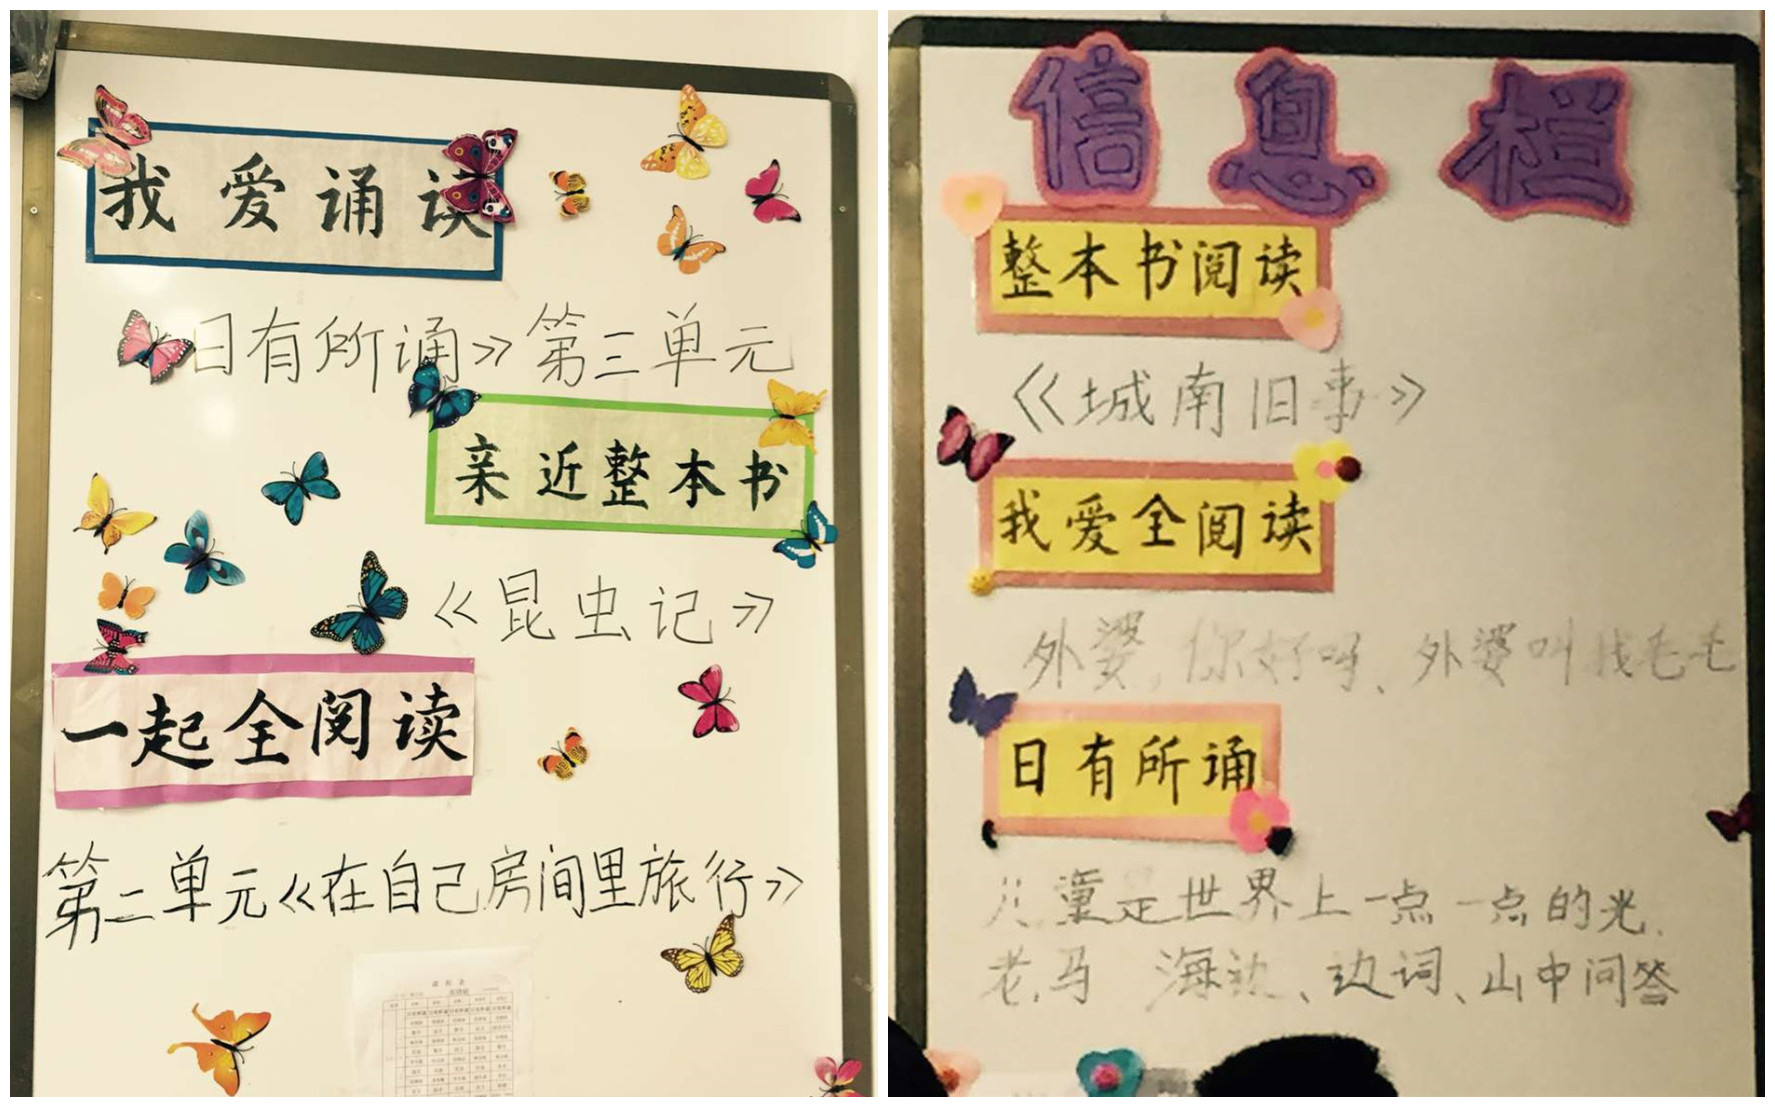 我爱诵读
日有所诵》第三单元
亲近整本书
《昆虫记》
一起全阅读
第二单元《在自己房间里旅行》
信息栏
整本书阅读
《城南旧事》
我爱全阅读
外婆，你好吗、外婆叫我毛毛
日有所诵
儿童是世界上一点一点的光、
老马 海边、边词、山中问答